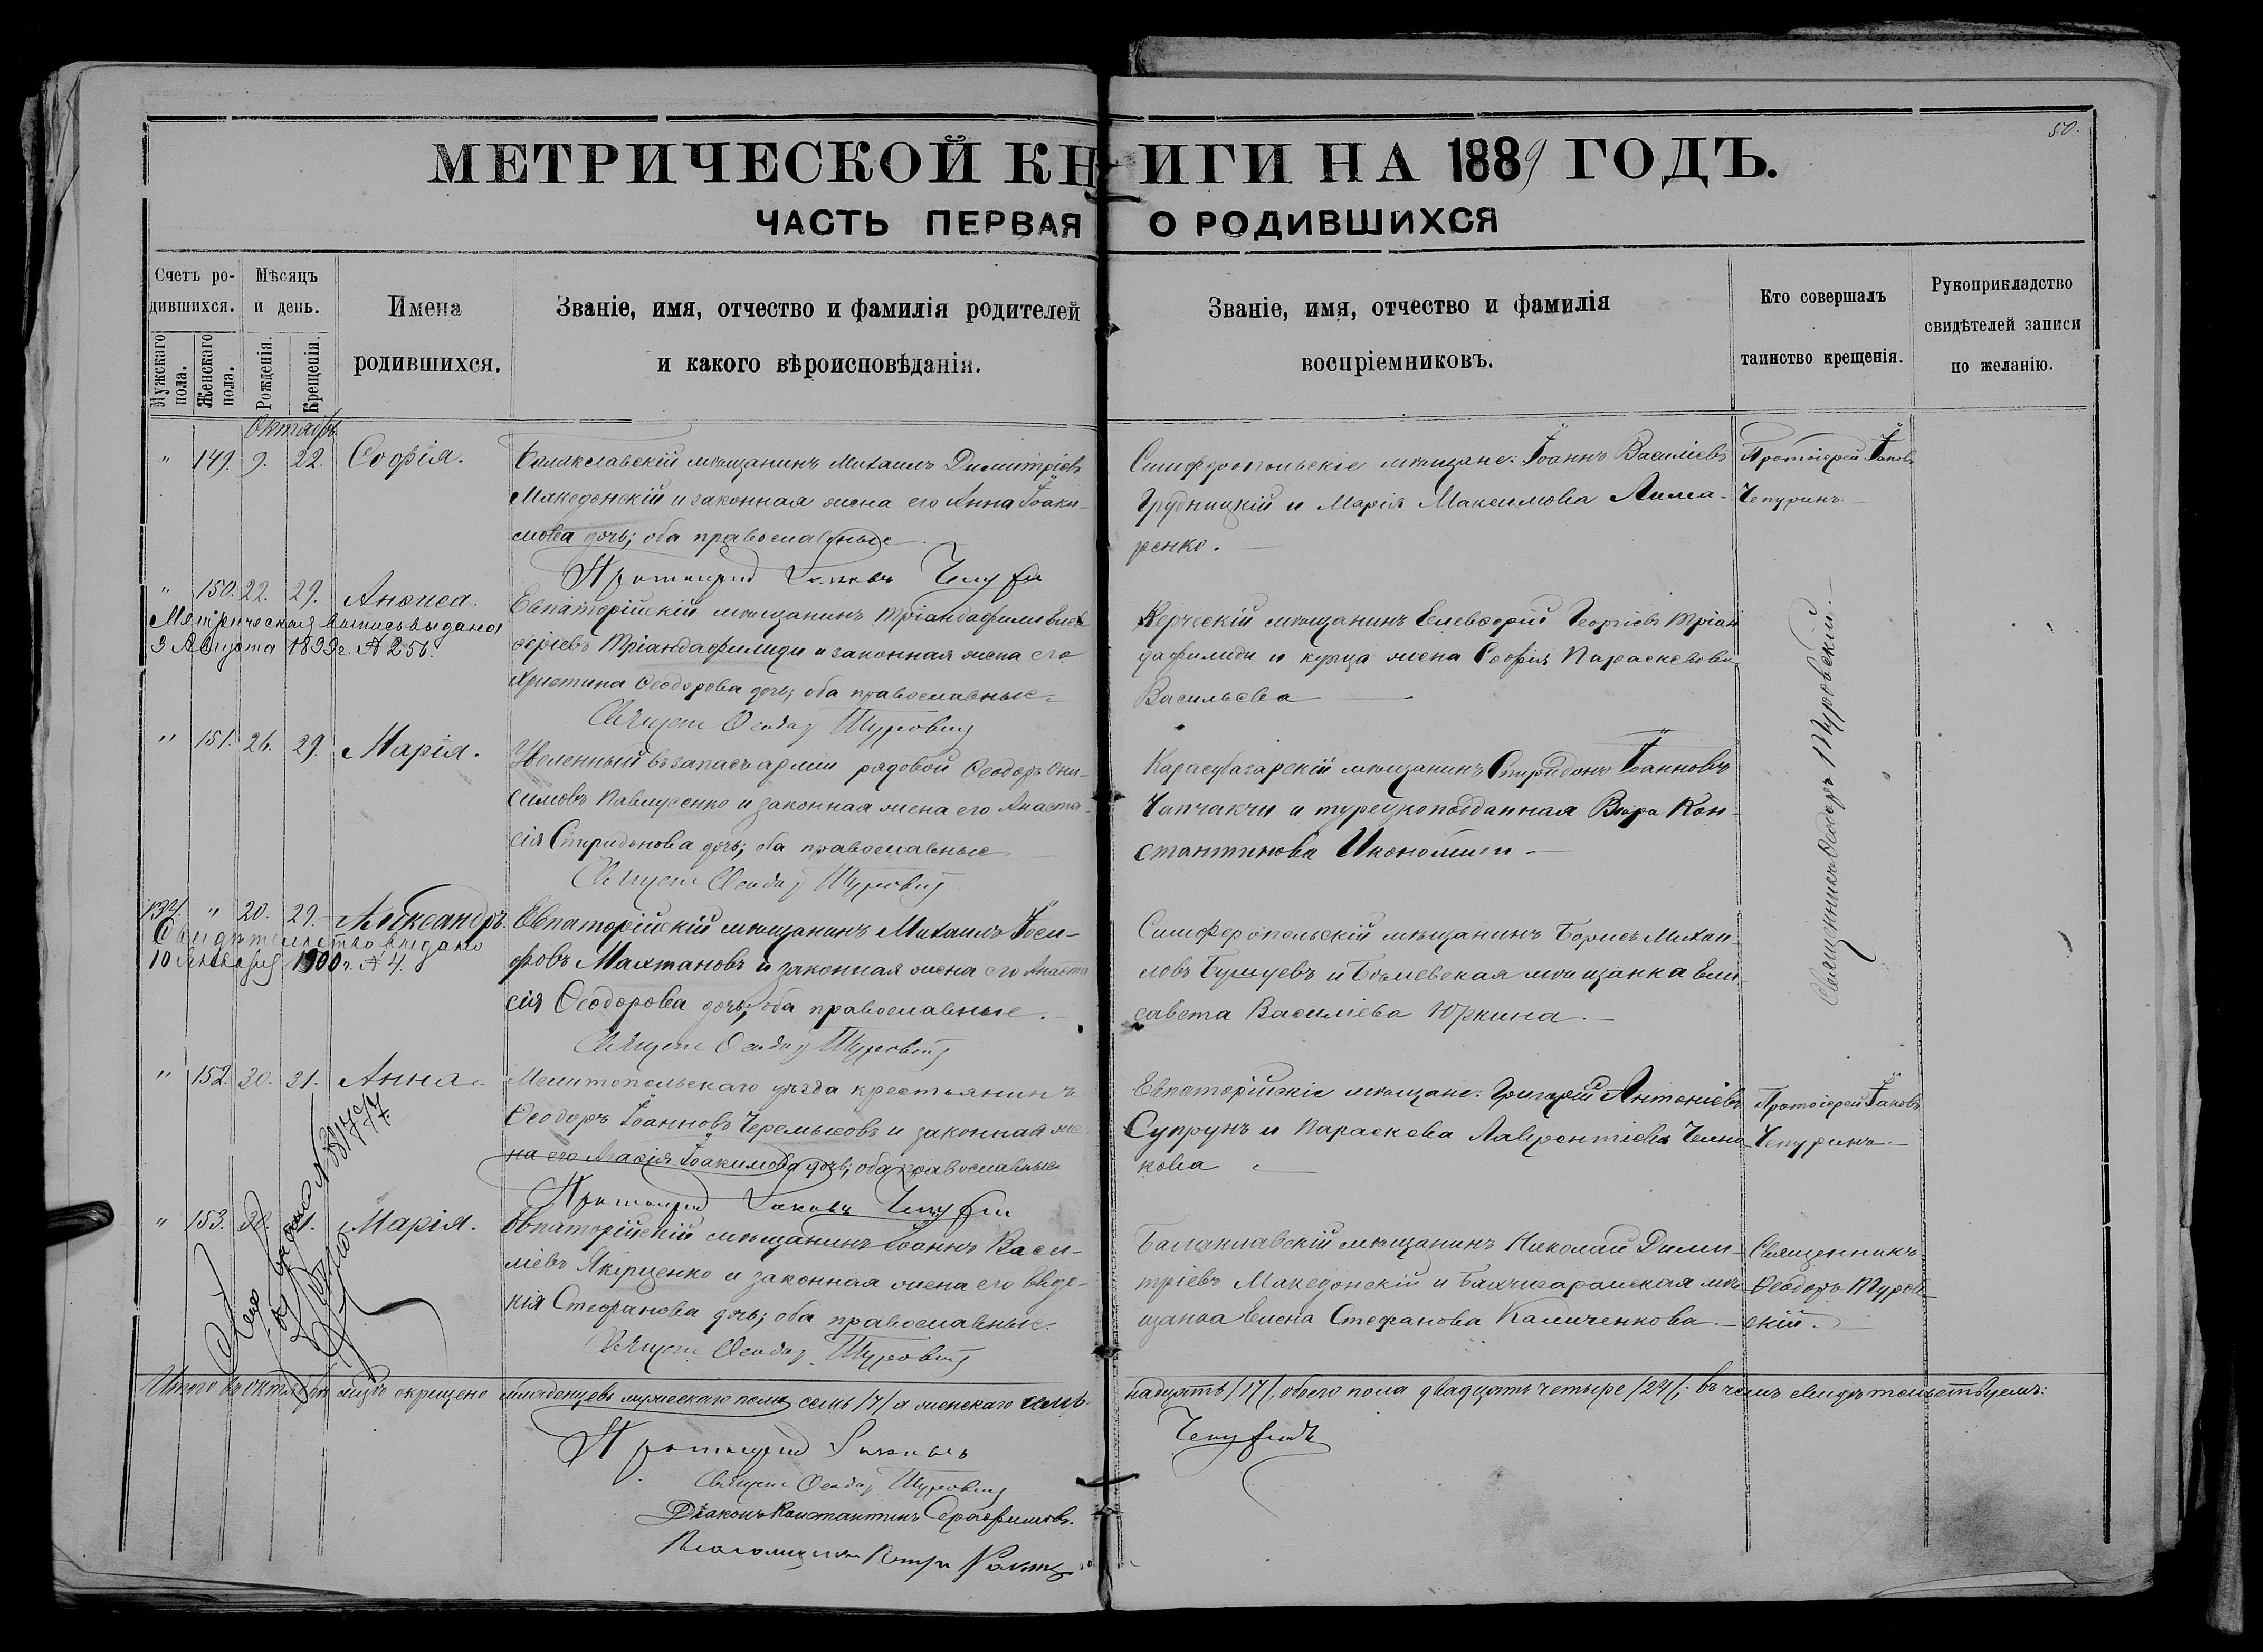 50.
МЕТРИЧЕСКОЙ КНИГИ НА 1889 ГОДЪ.
ЧАСТЬ ПЕРВАЯ О РОДИВШИХСЯ
Счетъ родившихся.
Мужскаго пола.
Женскаго пола.
Мѣсяцъ и день.
Рожденія.
Крещенія.
Имена родившихся.
Званіе, имя, отчество и фамилія родителей
и какого вѣроисповѣданія.
Званіе, имя, отчество и фамилія
воспріемниковъ.
Кто совершалъ
таинство крещенія.
Рукоприкладство
свидѣтелей записи
по желанію.
Октябрь
" 149. 9. 22. Софія.
Балаклавскій мѣщанинъ Михаилъ Димитріевъ
Македонскій и законная жена его Анна Іоаки-
мова дочь; оба православные.
Протоіерей Іаковъ Чепуринъ
Симферопольскіе мѣщане: Іоаннъ Василіевъ
Грудницкій и Марія Максимова Лима-
ренко.
Протоіерей Іаковъ
Чепуринъ.
" 150. 22. 29. Анѳиса.
Метрическая выпись выдана
3 Августа 1899 г. №
Евпаторійскій мѣщанинъ Тріандафилъ Елев-
ѳеріевъ Тріандафилиди и законная жена его
Христина Ѳеодорова дочь; оба православные.
Священ. Ѳеодоръ Туровскій
Керческій мѣщанинъ Елевѳерій Георгіевъ Тріан
дафилиди и купца жена Софія Параскевова
Васильева
Священникъ Ѳеодоръ Туровскій.
" 151. 26. 29. Марія.
Уволенный въ запасъ арміи рядовой Ѳеодоръ Они-
симовъ Павлусенко и законная жена его Анаста-
сія Спиридонова дочь; оба православные.
Священ. Ѳеодоръ Туровскій
Карасубазарскій мѣщанинъ Спиридонъ Іоанновъ
Чапчакчи и турецкоподданная Вѣра Кон-
стантинова
134. " 20. 29. Александръ.
Свидѣтельство выдано
10 Января 1900 г. № 4.
Евпаторійскій мѣщанинъ Михаилъ Іоси-
фовъ Махтановъ и законная жена его Анаста
сія Ѳеодорова дочь; оба православные.
Священ. Ѳеодоръ Туровскій
Симферопольскій мѣщанинъ Борисъ Михаи-
ловъ и мѣщанка Ели-
савета Василіева Юркина.
" 152. 30. 31. Анна.
Мелитопольскаго уѣзда крестьянинъ
Ѳеодоръ Іоанновъ Черемысовъ и законная же-
на его Агаѳія Іоакимова дочь; оба православные
Протоіерей Іаковъ Чепуринъ
Евпаторійскіе мѣщане: Григорій Антоніевъ
Супрунъ и Параскева Лаврентіева
кова
Протоіерей Іаковъ
Чепуринъ.
" 153. Марія.
Евпаторійскій мѣщанинъ Іоаннъ Васи-
ліевъ Якущенко и законная жена его Евдо-
кія Стефанова дочь; оба православные.
Священ. Ѳеодоръ Туровскій
Балаклавскій мѣщанинъ Николай Дими-
тріевъ Македонскій и Бахчисарайская мѣ-
щанка Елена Стефанова Каличенкова.
Священникъ
Ѳеодоръ Туров-
скій.
Итого въ октябрѣ мцѣ окрещено младенцевъ мужескаго пола семь /7/ и женскаго семь-
надцать /17/, обоего пола двадцать четыре /24/; въ чемъ свидѣтельствуемъ:
Протоіерей Іаковъ Чепуринъ
Священ. Ѳеодоръ Туровскій
Діаконъ Константинъ Серафимовъ.
Псаломщикъ Петръ